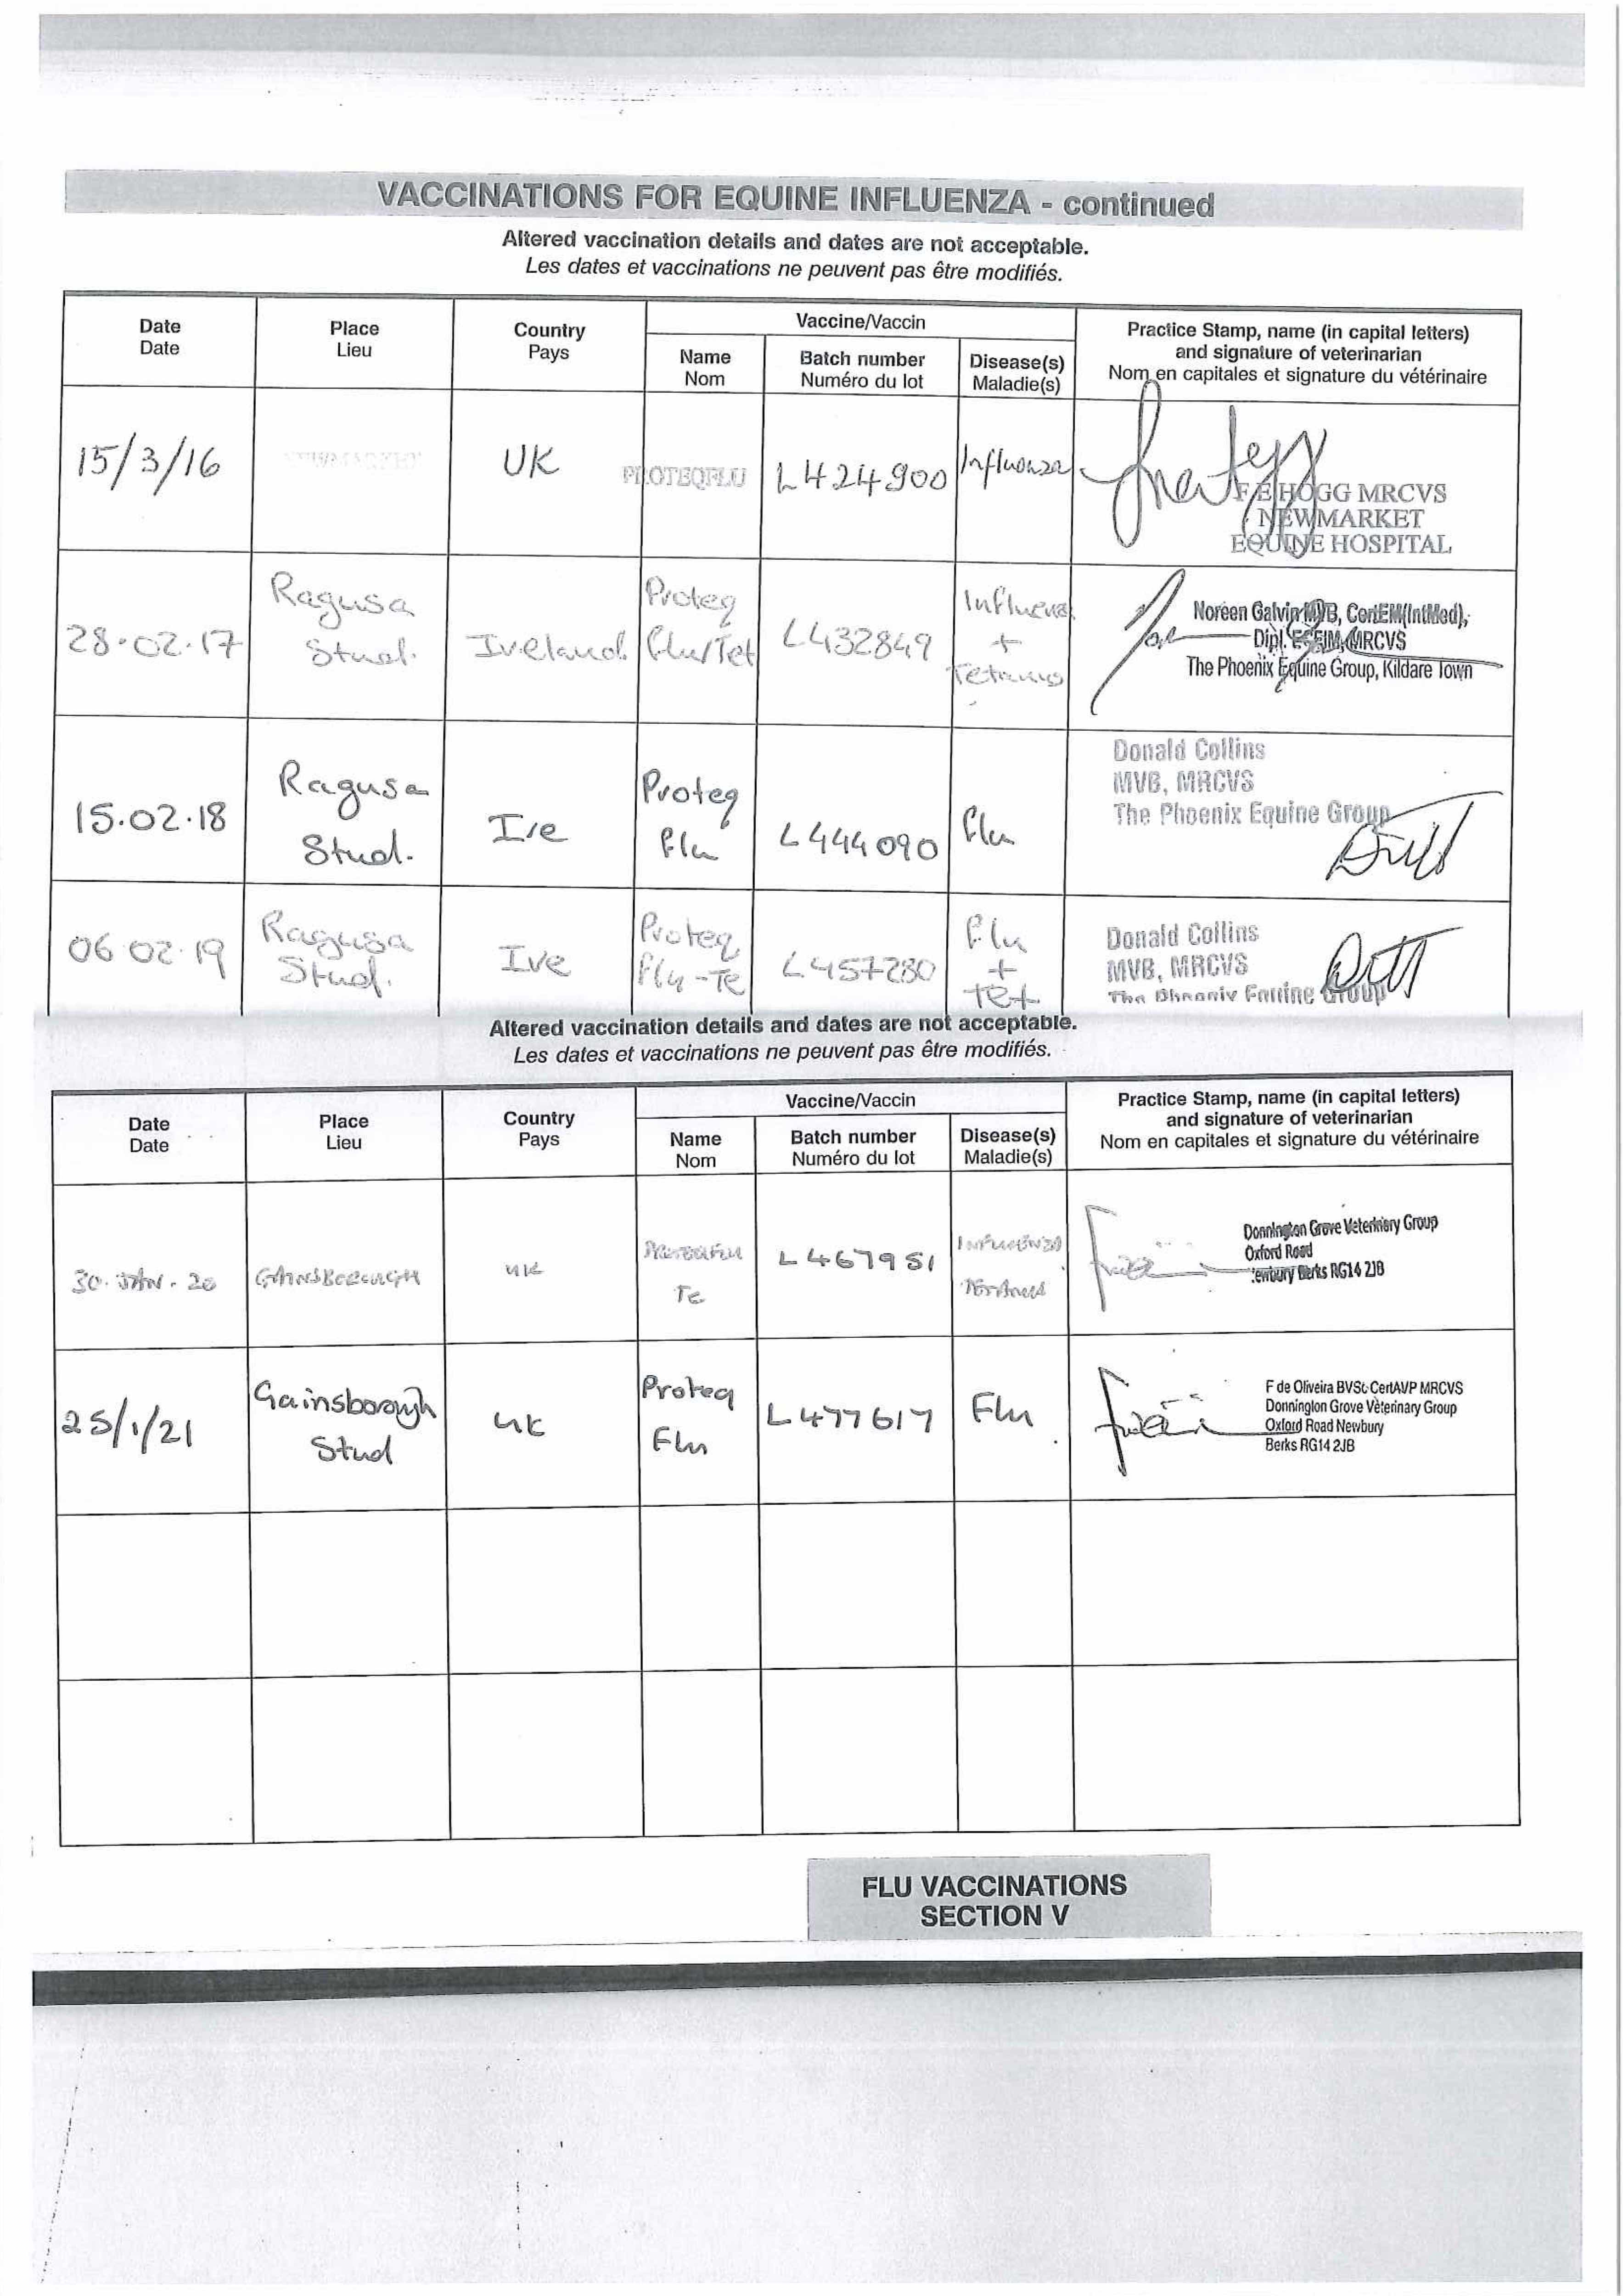 VACCINATIONS FOR EQUINE INFLUENZA - continued
Altered vaccination details and dates are not acceptable.
Les dates et vaccinations ne peuvent pas être modifiés.
Date
Date
Place
Lieu
Country
Pays
Vaccine/Vaccin
Name
Nom
Batch number
Numéro du lot
Disease(s)
Maladie(s)
Practice Stamp, name (in capital letters)
and signature of veterinarian
Nom en capitales et signature du vétérinaire
15/3/16
NEWMARKET
UK
PROTEQFLU
L424900
Influenza
F E HOGG MRCVS
NEWMARKET
EQUINE HOSPITAL
28.02.17
Ragusa
Stud.
Ireland.
Proteq
Flu/Tet
L432849
Influenza
+
Tetanus
Noreen Galvin MVB, CertEM(IntMed),
Dipl. ECEIM, MRCVS
The Phoenix Equine Group, Kildare Town
15.02.18
Ragusa
Stud.
Ire
Proteq
Flu
L444090
Flu
Donald Collins
MVB, MRCVS
The Phoenix Equine Group
06.02.19
Ragusa
Stud.
Ire
Proteq
Flu-Te
L457280
Flu
+
Tet
Donald Collins
MVB, MRCVS
The Phoenix Equine Group
Altered vaccination details and dates are not acceptable.
Les dates et vaccinations ne peuvent pas être modifiés.
Date
Date
Place
Lieu
Country
Pays
Vaccine/Vaccin
Name
Nom
Batch number
Numéro du lot
Disease(s)
Maladie(s)
Practice Stamp, name (in capital letters)
and signature of veterinarian
Nom en capitales et signature du vétérinaire
30.JAN.20
GAINSBOROUGH
UK
PROTEQFLU
Te
L467951
INFLUENZA
TETANUS
Donnington Grove Veterinary Group
Oxford Road
Newbury Berks RG14 2JB
25/1/21
Gainsborough
Stud
UK
Proteq
Flu
L477617
Flu
F de Oliveira BVSc CertAVP MRCVS
Donnington Grove Veterinary Group
Oxford Road Newbury
Berks RG14 2JB
FLU VACCINATIONS
SECTION V